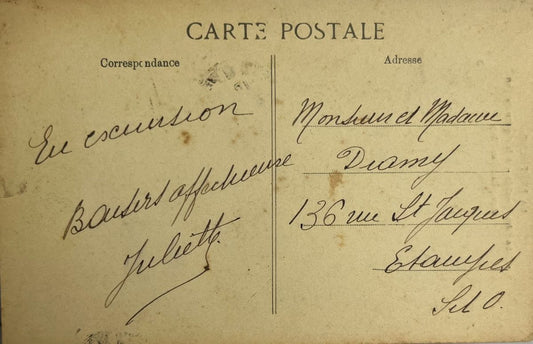 CARTE POSTALE
Correspondance
Adresse
En excursion
Baisers affectueux
Juliette
Monsieur et Madame
Dramy
136 rue St Jacques
Etampes
S et O.